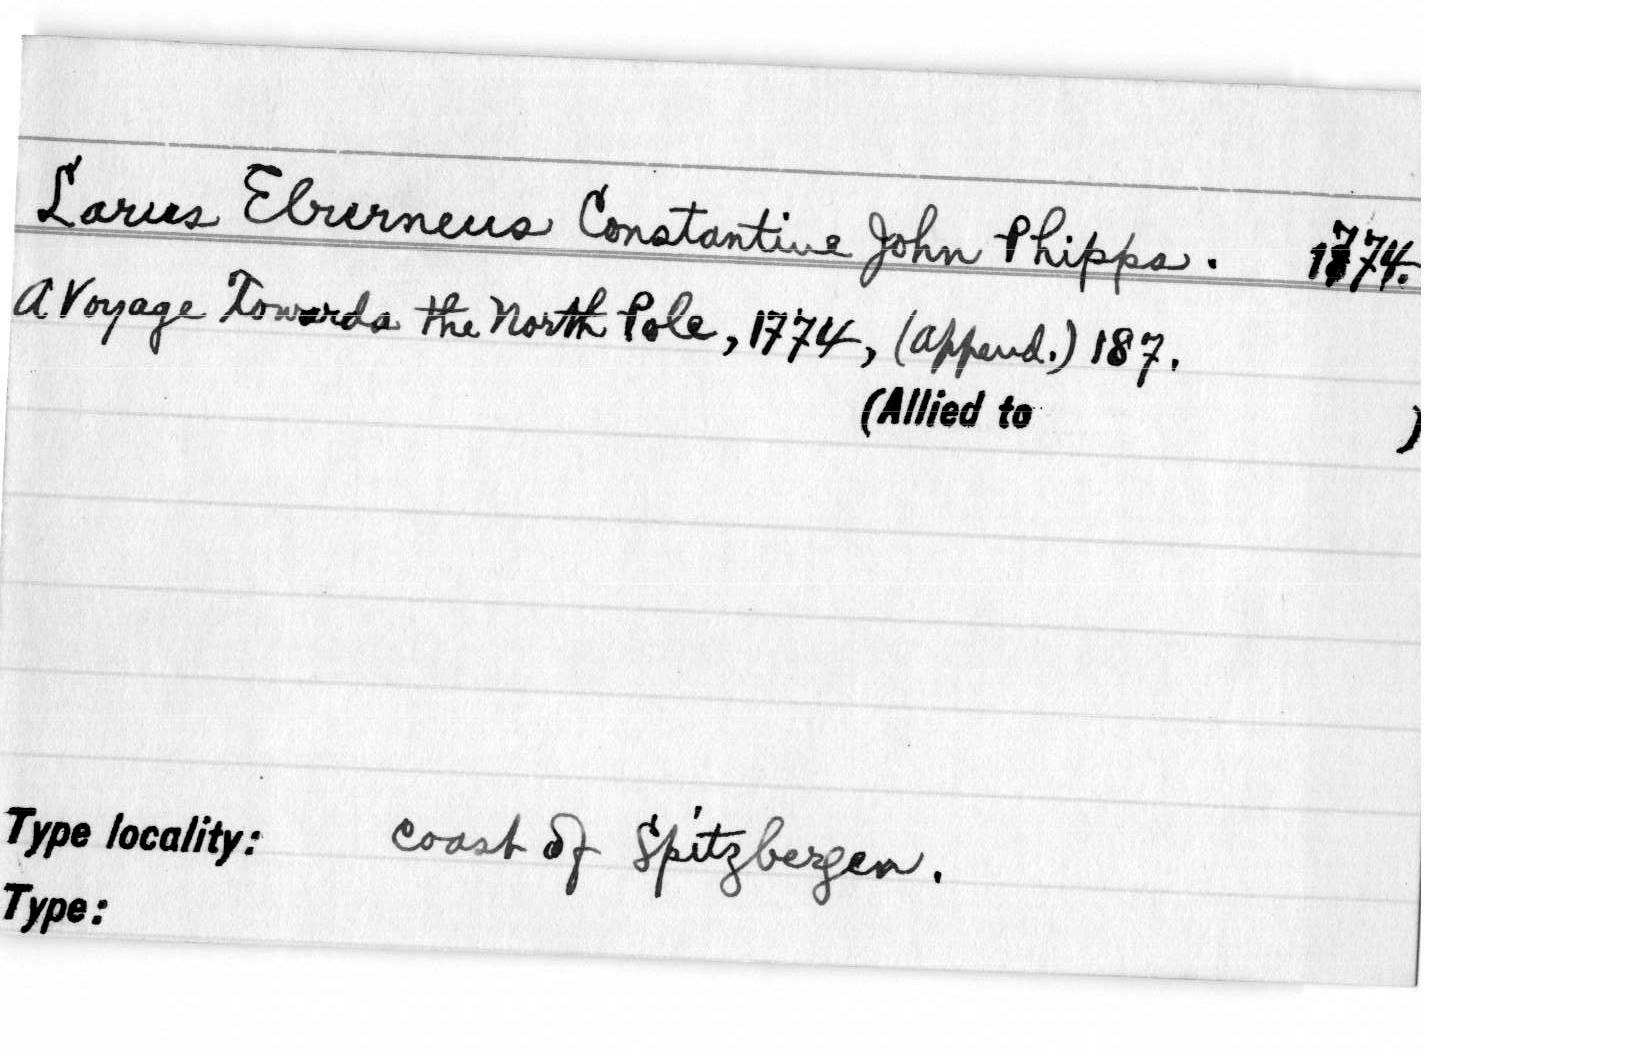 Larus Eburneus Constantine John Phipps. 1774.
A Voyage Towards the North Pole, 1774, (append.) 187.
(Allied to )
Type locality: coast of Spitzbergen.
Type: